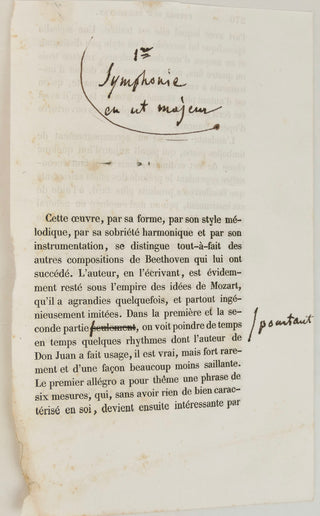 1re
Symphonie
en ut majeur
Cette œuvre, par sa forme, par son style mé-
lodique, par sa sobriété harmonique et par son
instrumentation, se distingue tout-à-fait des
autres compositions de Beethoven qui lui ont
succédé. L'auteur, en l'écrivant, est évidem-
ment resté sous l'empire des idées de Mozart,
qu'il a agrandies quelquefois, et partout ingé-
nieusement imitées. Dans la première et la se-
conde partie seulement, on voit poindre de temps
pourtant
en temps quelques rhythmes dont l'auteur de
Don Juan a fait usage, il est vrai, mais fort rare-
ment et d'une façon beaucoup moins saillante.
Le premier allégro a pour thême une phrase de
six mesures, qui, sans avoir rien de bien carac-
térisé en soi, devient ensuite intéressante par